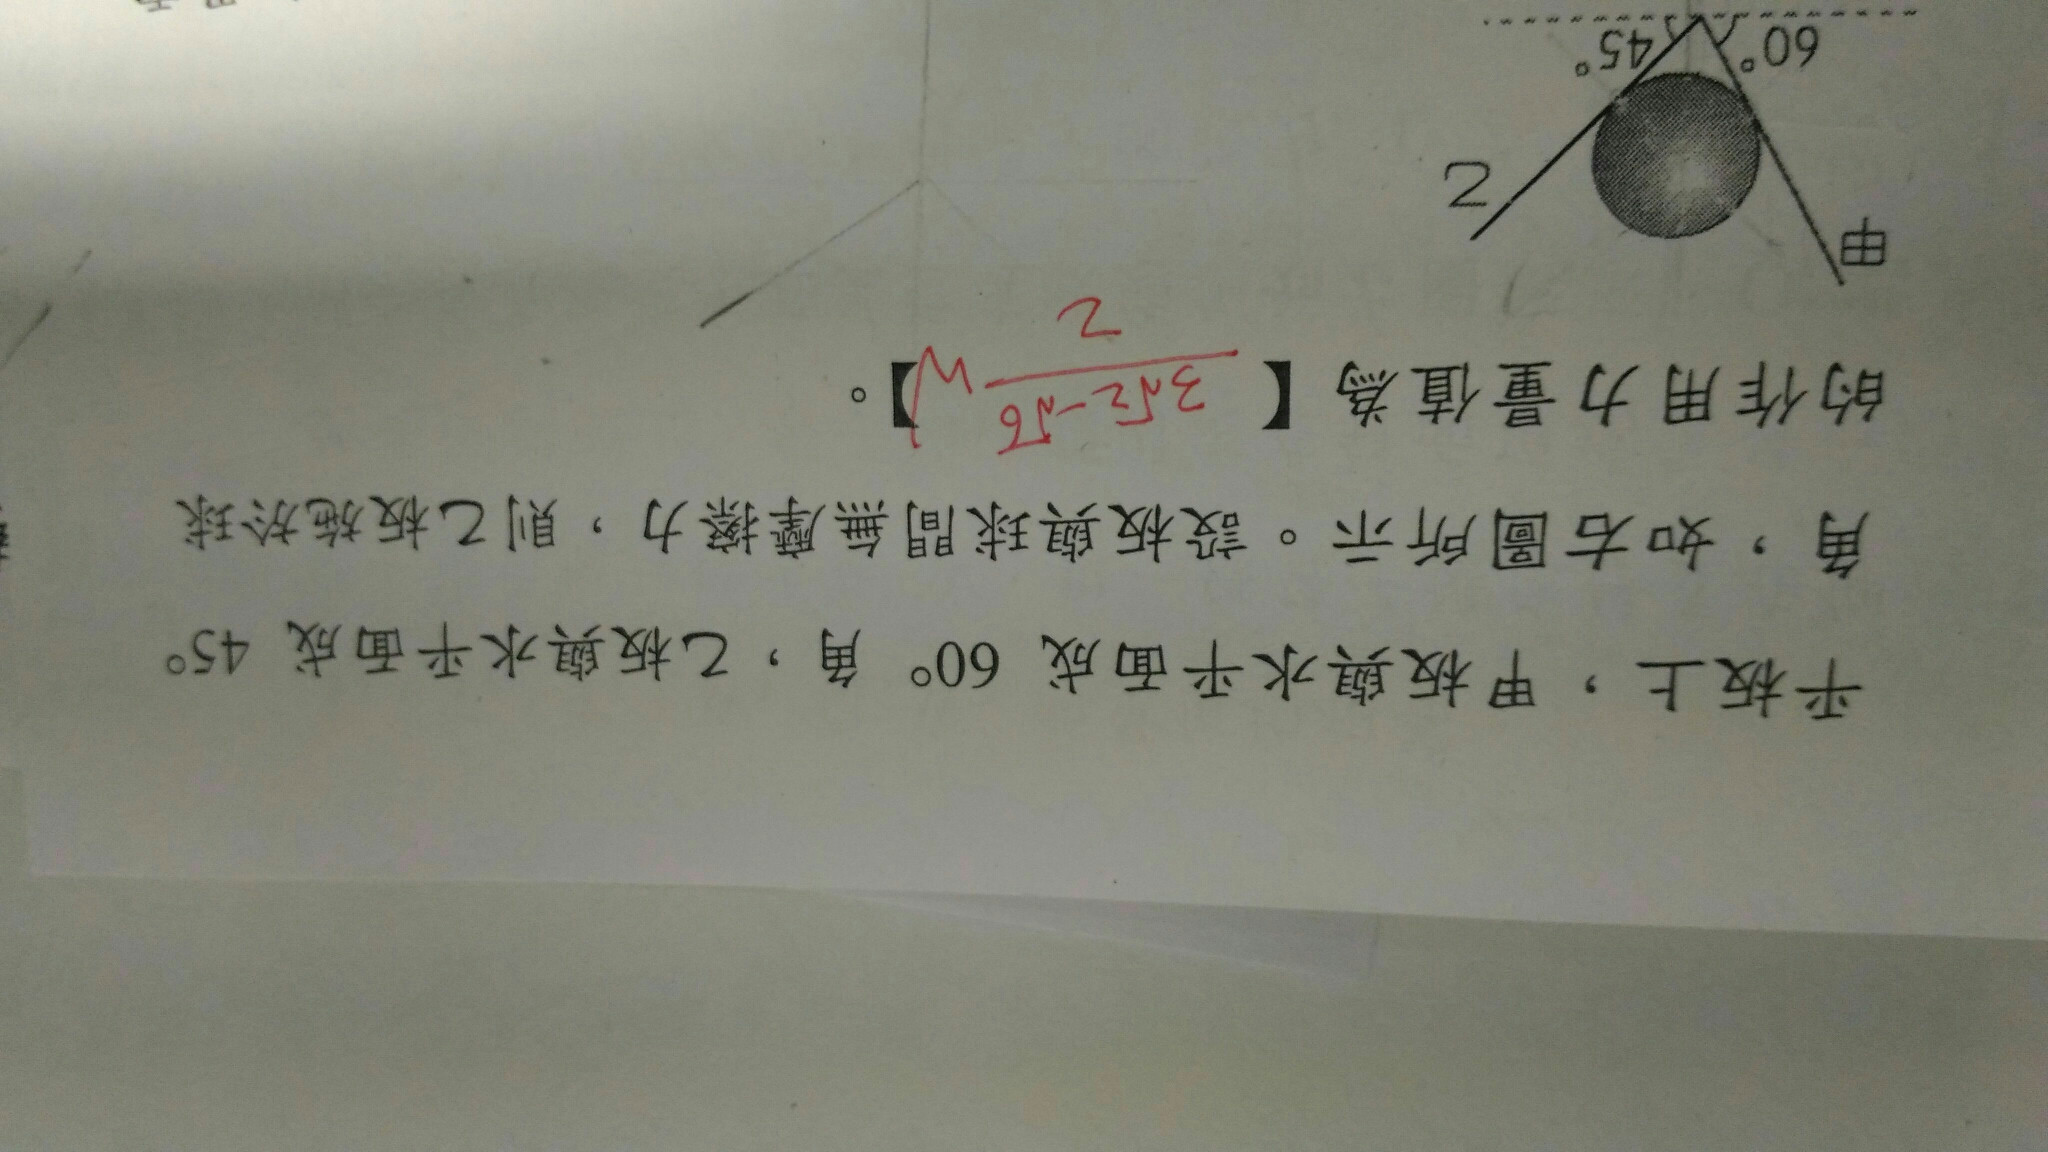 平板上，甲板與水平面成 60° 角，乙板與水平面成 45°
角，如右圖所示。設板與球間無摩擦力，則乙板施於球
的作用力量值為【3√2-√6/2 W】。
甲
乙
60°
45°